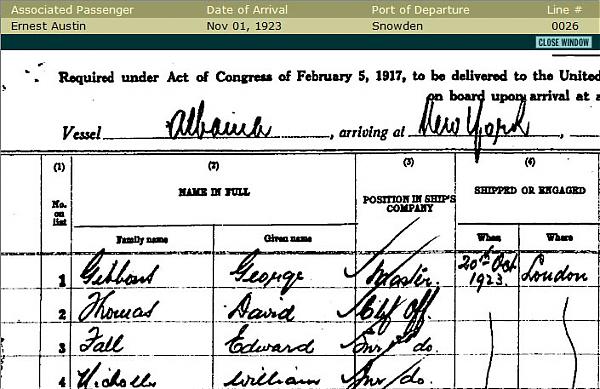 Associated Passenger Date of Arrival Port of Departure Line #
Ernest Austin Nov 01, 1923 Snowden 0026
CLOSE WINDOW
Required under Act of Congress of February 5, 1917, to be delivered to the United
on board upon arrival at a
Vessel Albania, arriving at New York,
(1) (2) (3) (4)
No. on list NAME IN FULL POSITION IN SHIP'S COMPANY SHIPPED OR ENGAGED
Family name Given name When Where
1 Gibbons George Master. 20th Oct. 1923. London
2 Thomas David Chf Off.
3 Fall Edward do.
4 Nicholls William do.